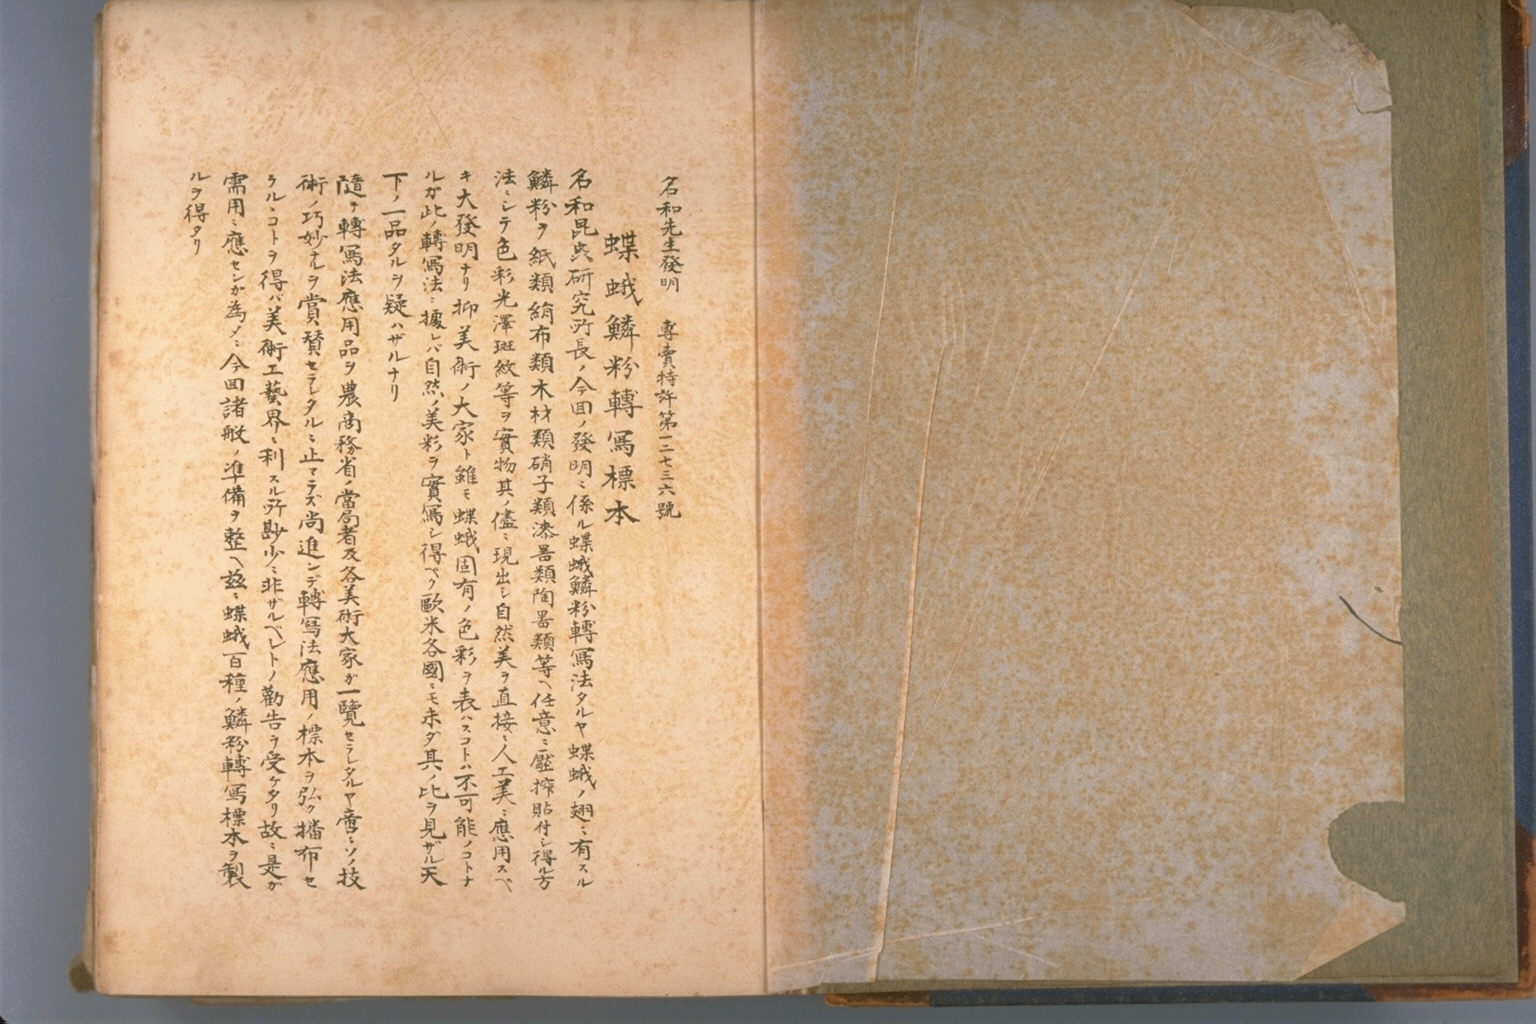 名和先生發明　專賣特許第一二七三六號
蝶蛾鱗粉轉寫標本
名和昆虫研究所長ノ今回ノ發明ニ係ル蝶蛾鱗粉轉寫法タルヤ蝶蛾ノ翅ニ有スル
鱗粉ヲ紙類絹布類木材類硝子類漆器類陶器類等ヘ任意ニ壓搾貼付シ得ル方
法ニシテ色彩光澤斑紋等ヲ實物其ノ儘ニ現出シ自然美ヲ直接ニ人工美ニ應用スベ
キ大發明ナリ抑美術ノ大家ト雖モ蝶蛾固有ノ色彩ヲ表ハスコトハ不可能ノコトナ
ルガ此ノ轉寫法ニ據レバ自然ノ美彩ヲ實寫シ得ベク歐米各國ニモ未ダ其ノ比ヲ見ザル天
下ノ一品タルヲ疑ハザルナリ
隨テ轉寫法應用品ヲ農商務省ノ當局者及各美術大家ガ一覽セラレタルヤ啻ニソノ技
術ノ巧妙ナルヲ賞賛セラレタルニ止マラズ尚進ンデ轉寫法應用ノ標本ヲ弘ク播布セ
ラルヽコトヲ得バ美術工藝界ニ利スル所尠少ニ非ザルベシトノ勸告ヲ受ケタリ故ニ是ガ
需用ニ應センガ為メニ今回諸般ノ準備ヲ整ヘ茲ニ蝶蛾百種ノ鱗粉轉寫標本ヲ製
ルヲ得タリ